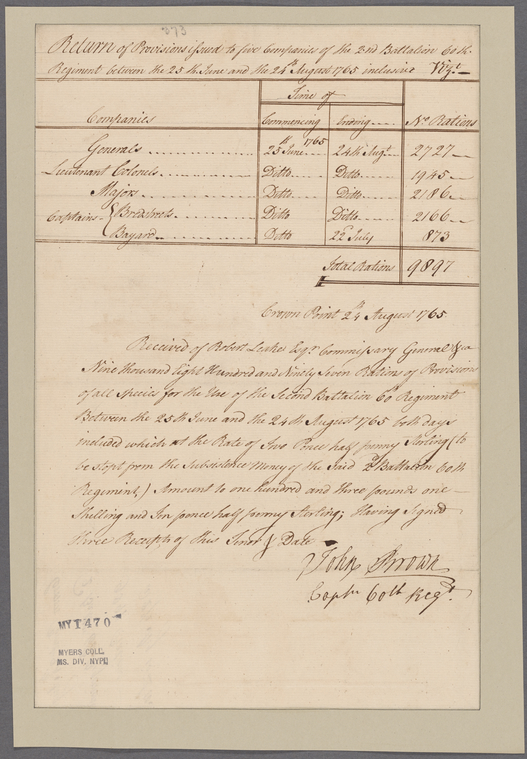 373
Return of Provisions issued to five Companies of the 2nd Battalion 60th
Regiment between the 25th June and the 24th August 1765 inclusive Vizt.
Time of
Companies Commencing Ending No. Rations
Generals 25th June 1765 24th Augt. 2727
Lieutenant Colonels Ditto Ditto 1945
Majors Ditto Ditto 2186
Captains { Ditto Ditto 2166
Bayard Ditto 22d July 873
Total Rations 9897
Crown Point 24th August 1765
Received of Robert Leake Esqr. Commissary General &ca
Nine thousand Eight Hundred and Ninety Seven Rations of Provisions
of all Species for the Use of the Second Battalion 60 Regiment
Between the 25th June and the 24th August 1765 both days
included which at the Rate of Two Pence half penny Sterling (to
be stopt from the Subsistence Money of the Said 2d Battalion 60th
Regiment,) Amount to one hundred and three pounds one
Shilling and Ten pence half penny Sterling; Having Signed
three Receipts of this Tenor & Date
John Brown
Captn. 60th Regt.
MY 1470
MYERS COLL.
MS. DIV. NYPL